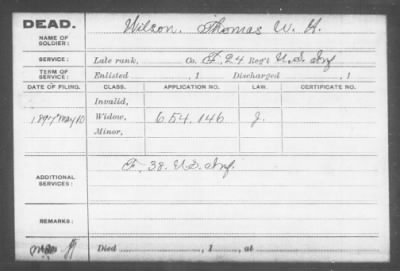 DEAD.
NAME OF SOLDIER: Wilson, Thomas W. H.
SERVICE: Late rank, Co. F. 24 Reg't U.S. Inf
TERM OF SERVICE: Enlisted , 1 Discharged , 1
DATE OF FILING. CLASS. APPLICATION NO. LAW. CERTIFICATE NO.
Invalid,
1897 May 10 Widow, 654.146 J.
Minor,
ADDITIONAL SERVICES: F. 38. U.S. Inf.
REMARKS:
Died , 1 , at